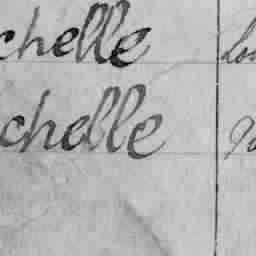 chelle
chelle